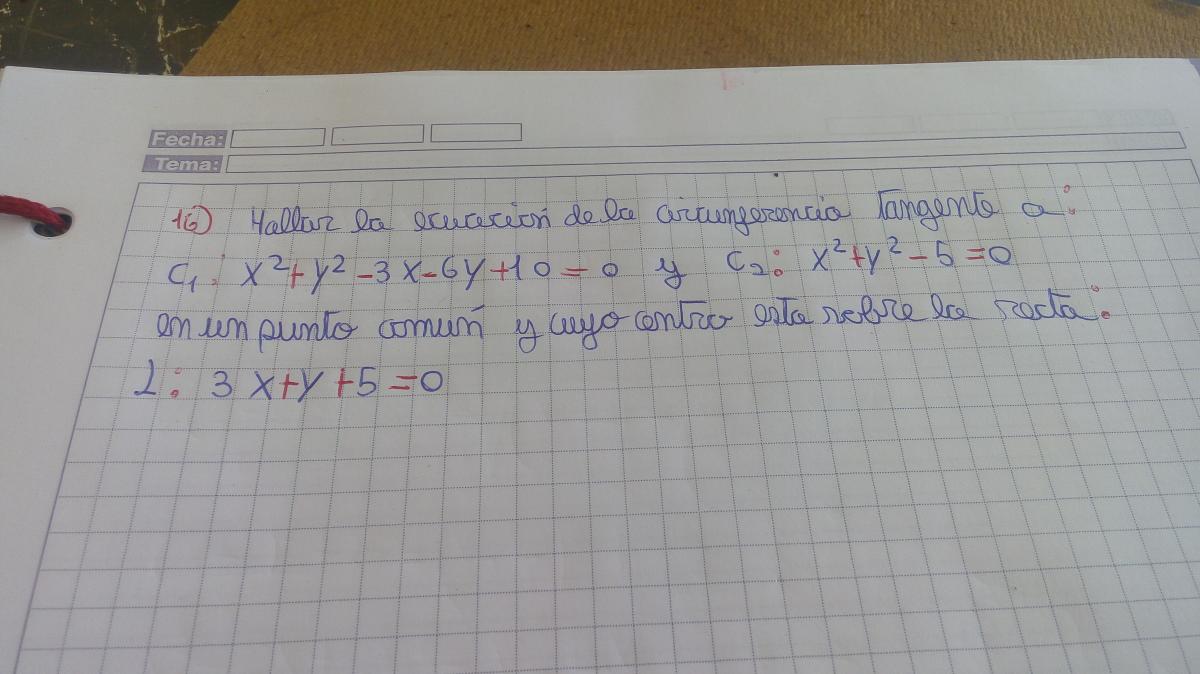 Fecha:
Tema:
16) Hallar la ecuación de la circunferencia Tangente a:
C₁: x²+y²-3x-6y+10=0 y C₂: x²+y²-5=0
en un punto común y cuyo centro esta sobre la recta:
L: 3x+y+5=0